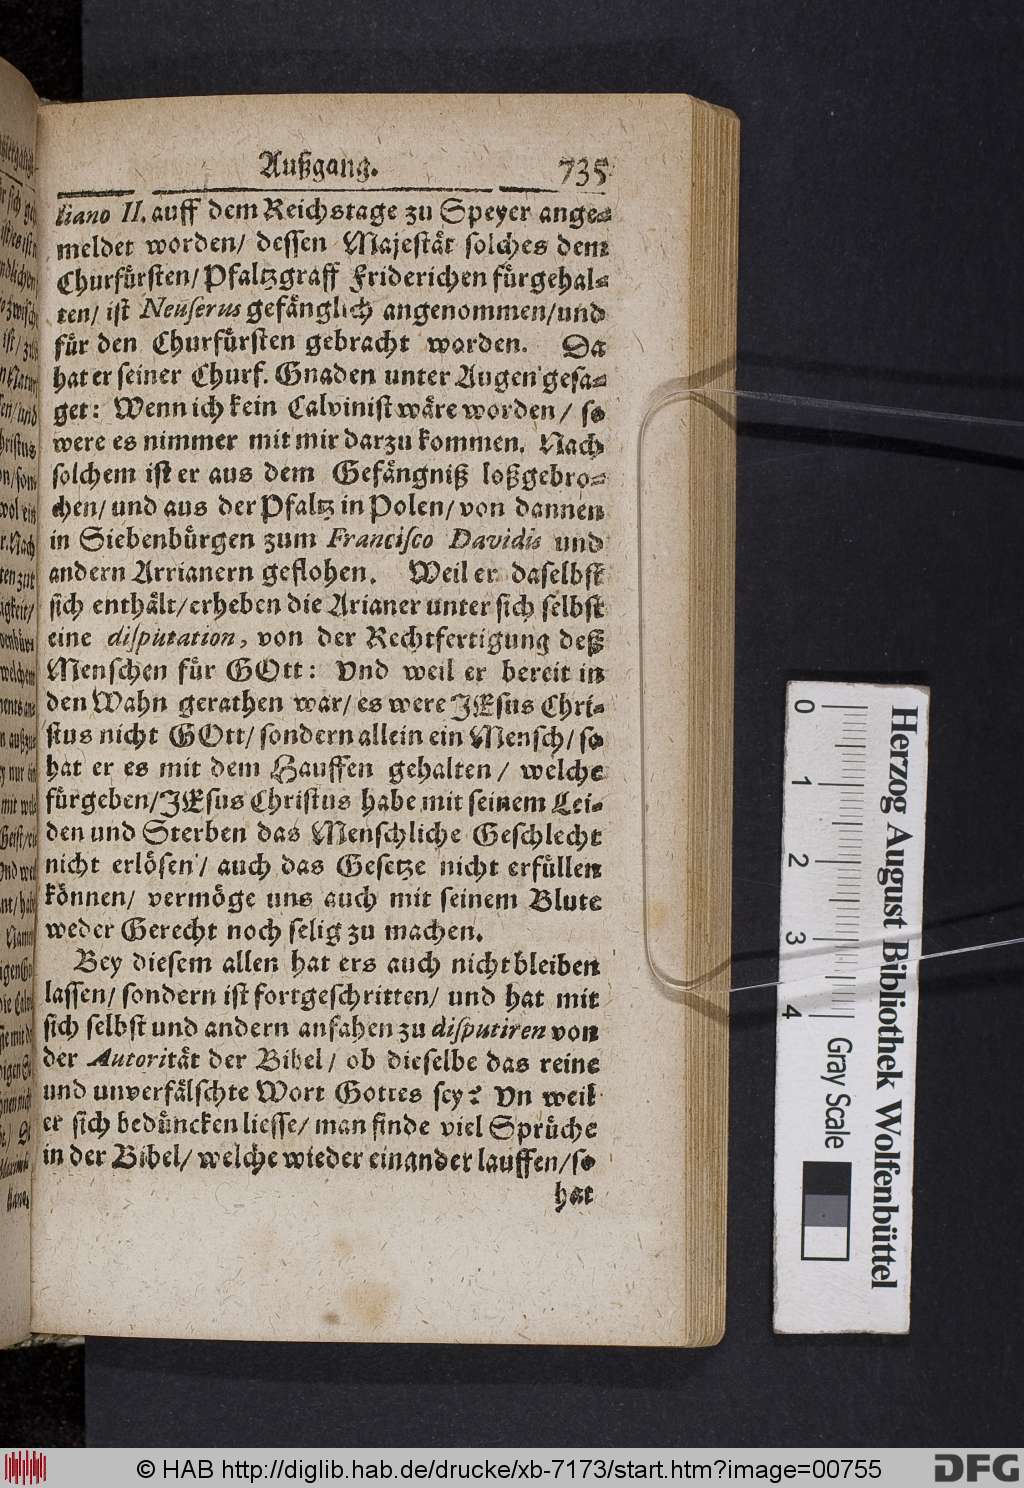 Außgang. 735
liano II. auff dem Reichstage zu Speyer ange-
meldet worden/ dessen Majestät solches dem
Churfürsten/ Pfaltzgraff Friderichen fürgehal-
ten/ ist Neuserus gefänglich angenommen/und
für den Churfürsten gebracht worden. Da
hat er seiner Churf. Gnaden unter Augen gesa-
get: Wenn ich kein Calvinist wäre worden/ so
were es nimmer mit mir darzu kommen. Nach
solchem ist er aus dem Gefängniß loßgebro-
chen/ und aus der Pfaltz in Polen/ von dannen
in Siebenbürgen zum Francisco Davidis und
andern Arrianern geflohen. Weil er daselbst
sich enthält/ erheben die Arianer unter sich selbst
eine disputation, von der Rechtfertigung deß
Menschen für GOtt: Vnd weil er bereit in
den Wahn gerathen war/ es were JEsus Chri-
stus nicht GOtt/ sondern allein ein Mensch/ so
hat er es mit dem Hauffen gehalten/ welche
fürgeben/ JEsus Christus habe mit seinem Lei-
den und Sterben das Menschliche Geschlecht
nicht erlösen/ auch das Gesetze nicht erfüllen
können/ vermöge uns auch mit seinem Blute
weder Gerecht noch selig zu machen.
Bey diesem allen hat ers auch nicht bleiben
lassen/ sondern ist fortgeschritten/ und hat mit
sich selbst und andern anfahen zu disputiren von
der Autorität der Bibel/ ob dieselbe das reine
und unverfälschte Wort Gottes sey? Vn weil
er sich bedüncken liesse/ man finde viel Sprüche
in der Bibel/ welche wieder einander lauffen/ so
hat
0 1 2 3 4
Herzog August Bibliothek Wolfenbüttel
Gray Scale
© HAB http://diglib.hab.de/drucke/xb-7173/start.htm?image=00755
DFG